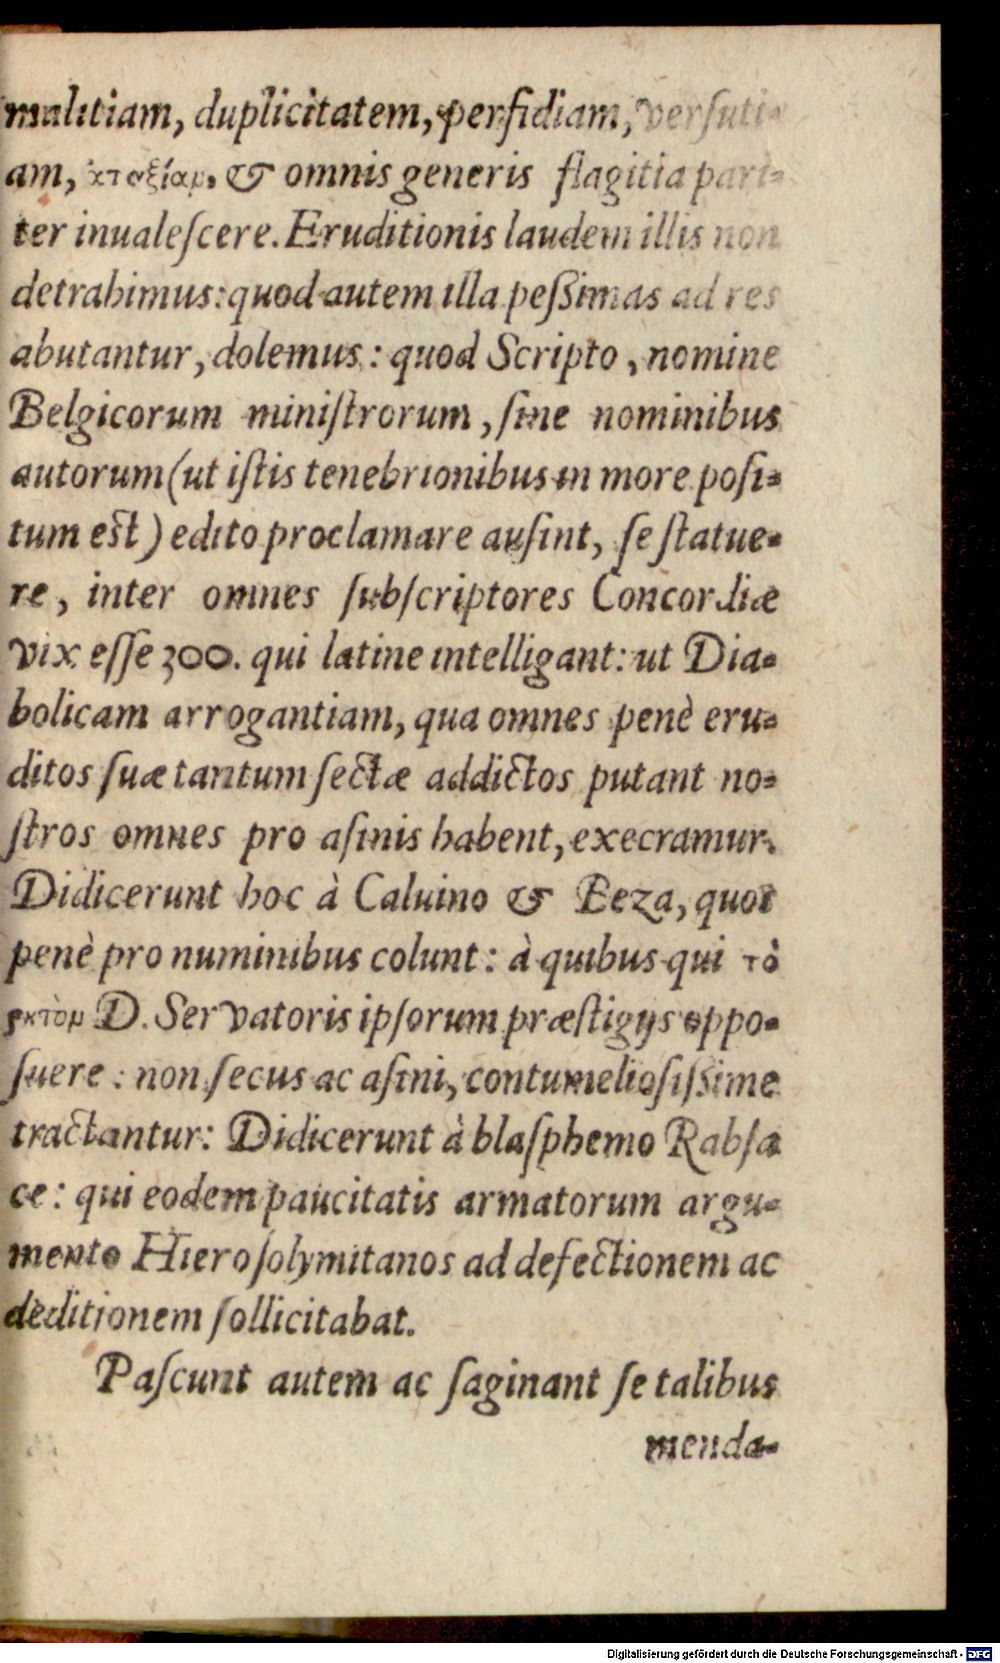 malitiam, duplicitatem, perfidiam, versuti-
am, ἀταξίαμ, & omnis generis flagitia pari-
ter inualeſcere. Eruditionis laudem illis non
detrahimus: quod autem illa peſſimas ad res
abutantur, dolemus: quod Scripto, nomine
Belgicorum miniſtrorum, ſine nominibus
autorum (ut iſtis tenebrionibus in more poſi-
tum eſt) edito proclamare auſint, ſe ſtatue-
re, inter omnes ſubſcriptores Concordiæ
vix eſſe 300. qui latine intelligant: ut Dia-
bolicam arrogantiam, qua omnes penè eru-
ditos ſuæ tantum ſectæ addictos putant no-
ſtros omnes pro aſinis habent, execramur.
Didicerunt hoc à Caluino & Beza, quos
penè pro numinibus colunt: à quibus qui τὸ
ῥητὸμ D. Servatoris ipſorum præſtigijs oppo-
ſuere: non ſecus ac aſini, contumelioſiſſime
tractantur: Didicerunt à blaſphemo Rabſa
ce: qui eodem paucitatis armatorum argu-
mento Hieroſolymitanos ad defectionem ac
deditionem ſollicitabat.
Paſcunt autem ac ſaginant ſe talibus
menda-
Digitalisierung gefördert durch die Deutsche Forschungsgemeinschaft - DFG